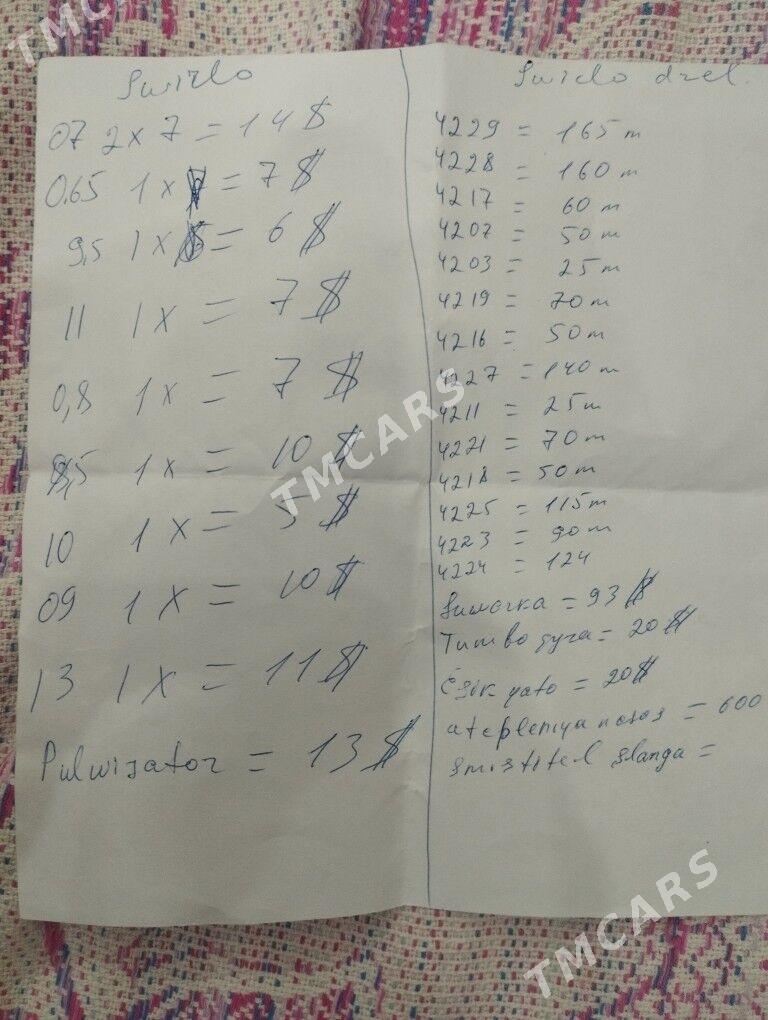 TMCARS
Swirlo
07 2x7 = 14$
0.65 1x = 7$
9,5 1x = 6$
11 1x = 7$
0,8 1x = 7$
8,5 1x = 10$
10 1x = 5$
09 1x = 10$
13 1x = 11$
Pulwizator = 13$
Swirlo drel.
4229 = 165 m
4228 = 160 m
4217 = 60 m
4207 = 50 m
4203 = 25 m
4219 = 70 m
4216 = 50 m
4227 = 140 m
4211 = 25 m
4221 = 70 m
4218 = 50 m
4225 = 115 m
4223 = 90 m
4224 = 124
Suwarka = 93$
Tumbo = 20$
yato = 20$
atepleniya nasos = 600
smistitel slanga =
TMCARS
TMCARS